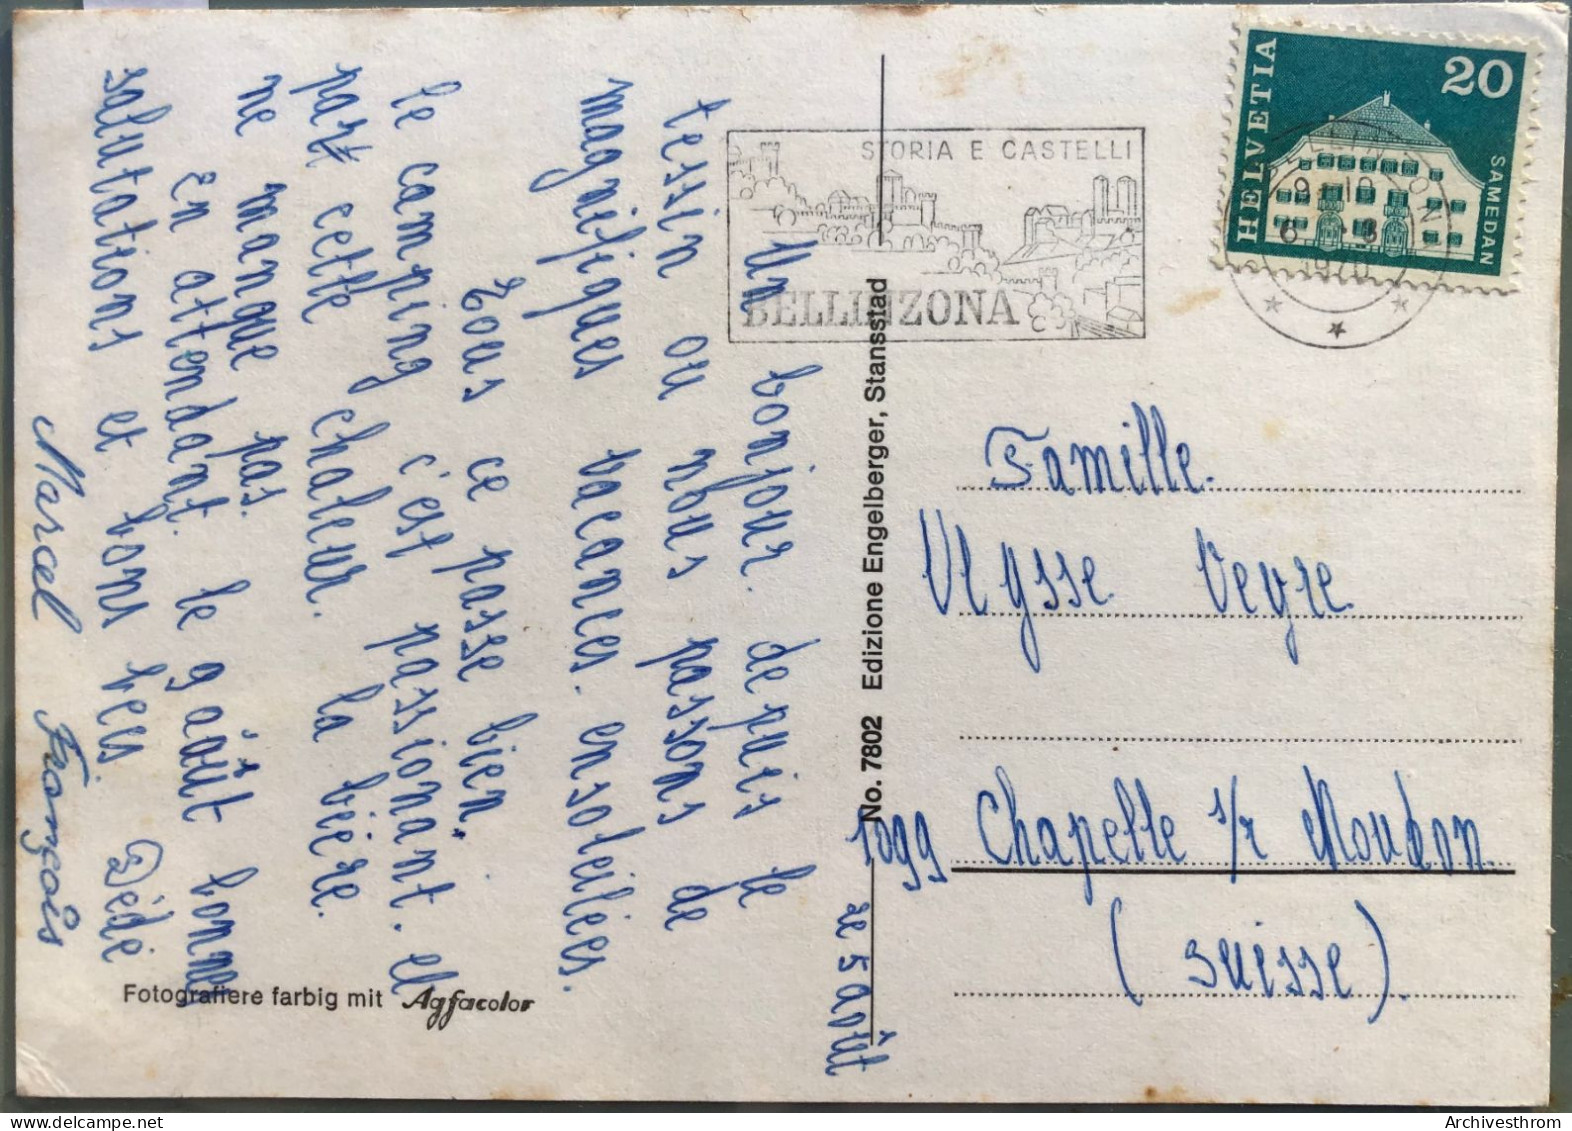 le 5 août
Un bonjour. depuis le
tessin ou nous passons de
magnifiques vacances. ensoleilées.
Tous ce passe bien.
le camping c'est passionânt. et
part cette chaleur. la bière.
ne manque pas.
En attendant. le gaôut bonnes
salutations et bons becs. Dédé
Marcel François
Fotografiere farbig mit Agfacolor
No. 7802 Edizione Engelberger, Stansstad
STORIA E CASTELLI
BELLINZONA
HELVETIA
20
SAMEDAN
BELLINZONA
1970
Famille.
Ulysse Veyre.
1099 Chapelle s/r Moudon.
(suisse).
Archivesthrom
delcampe.net